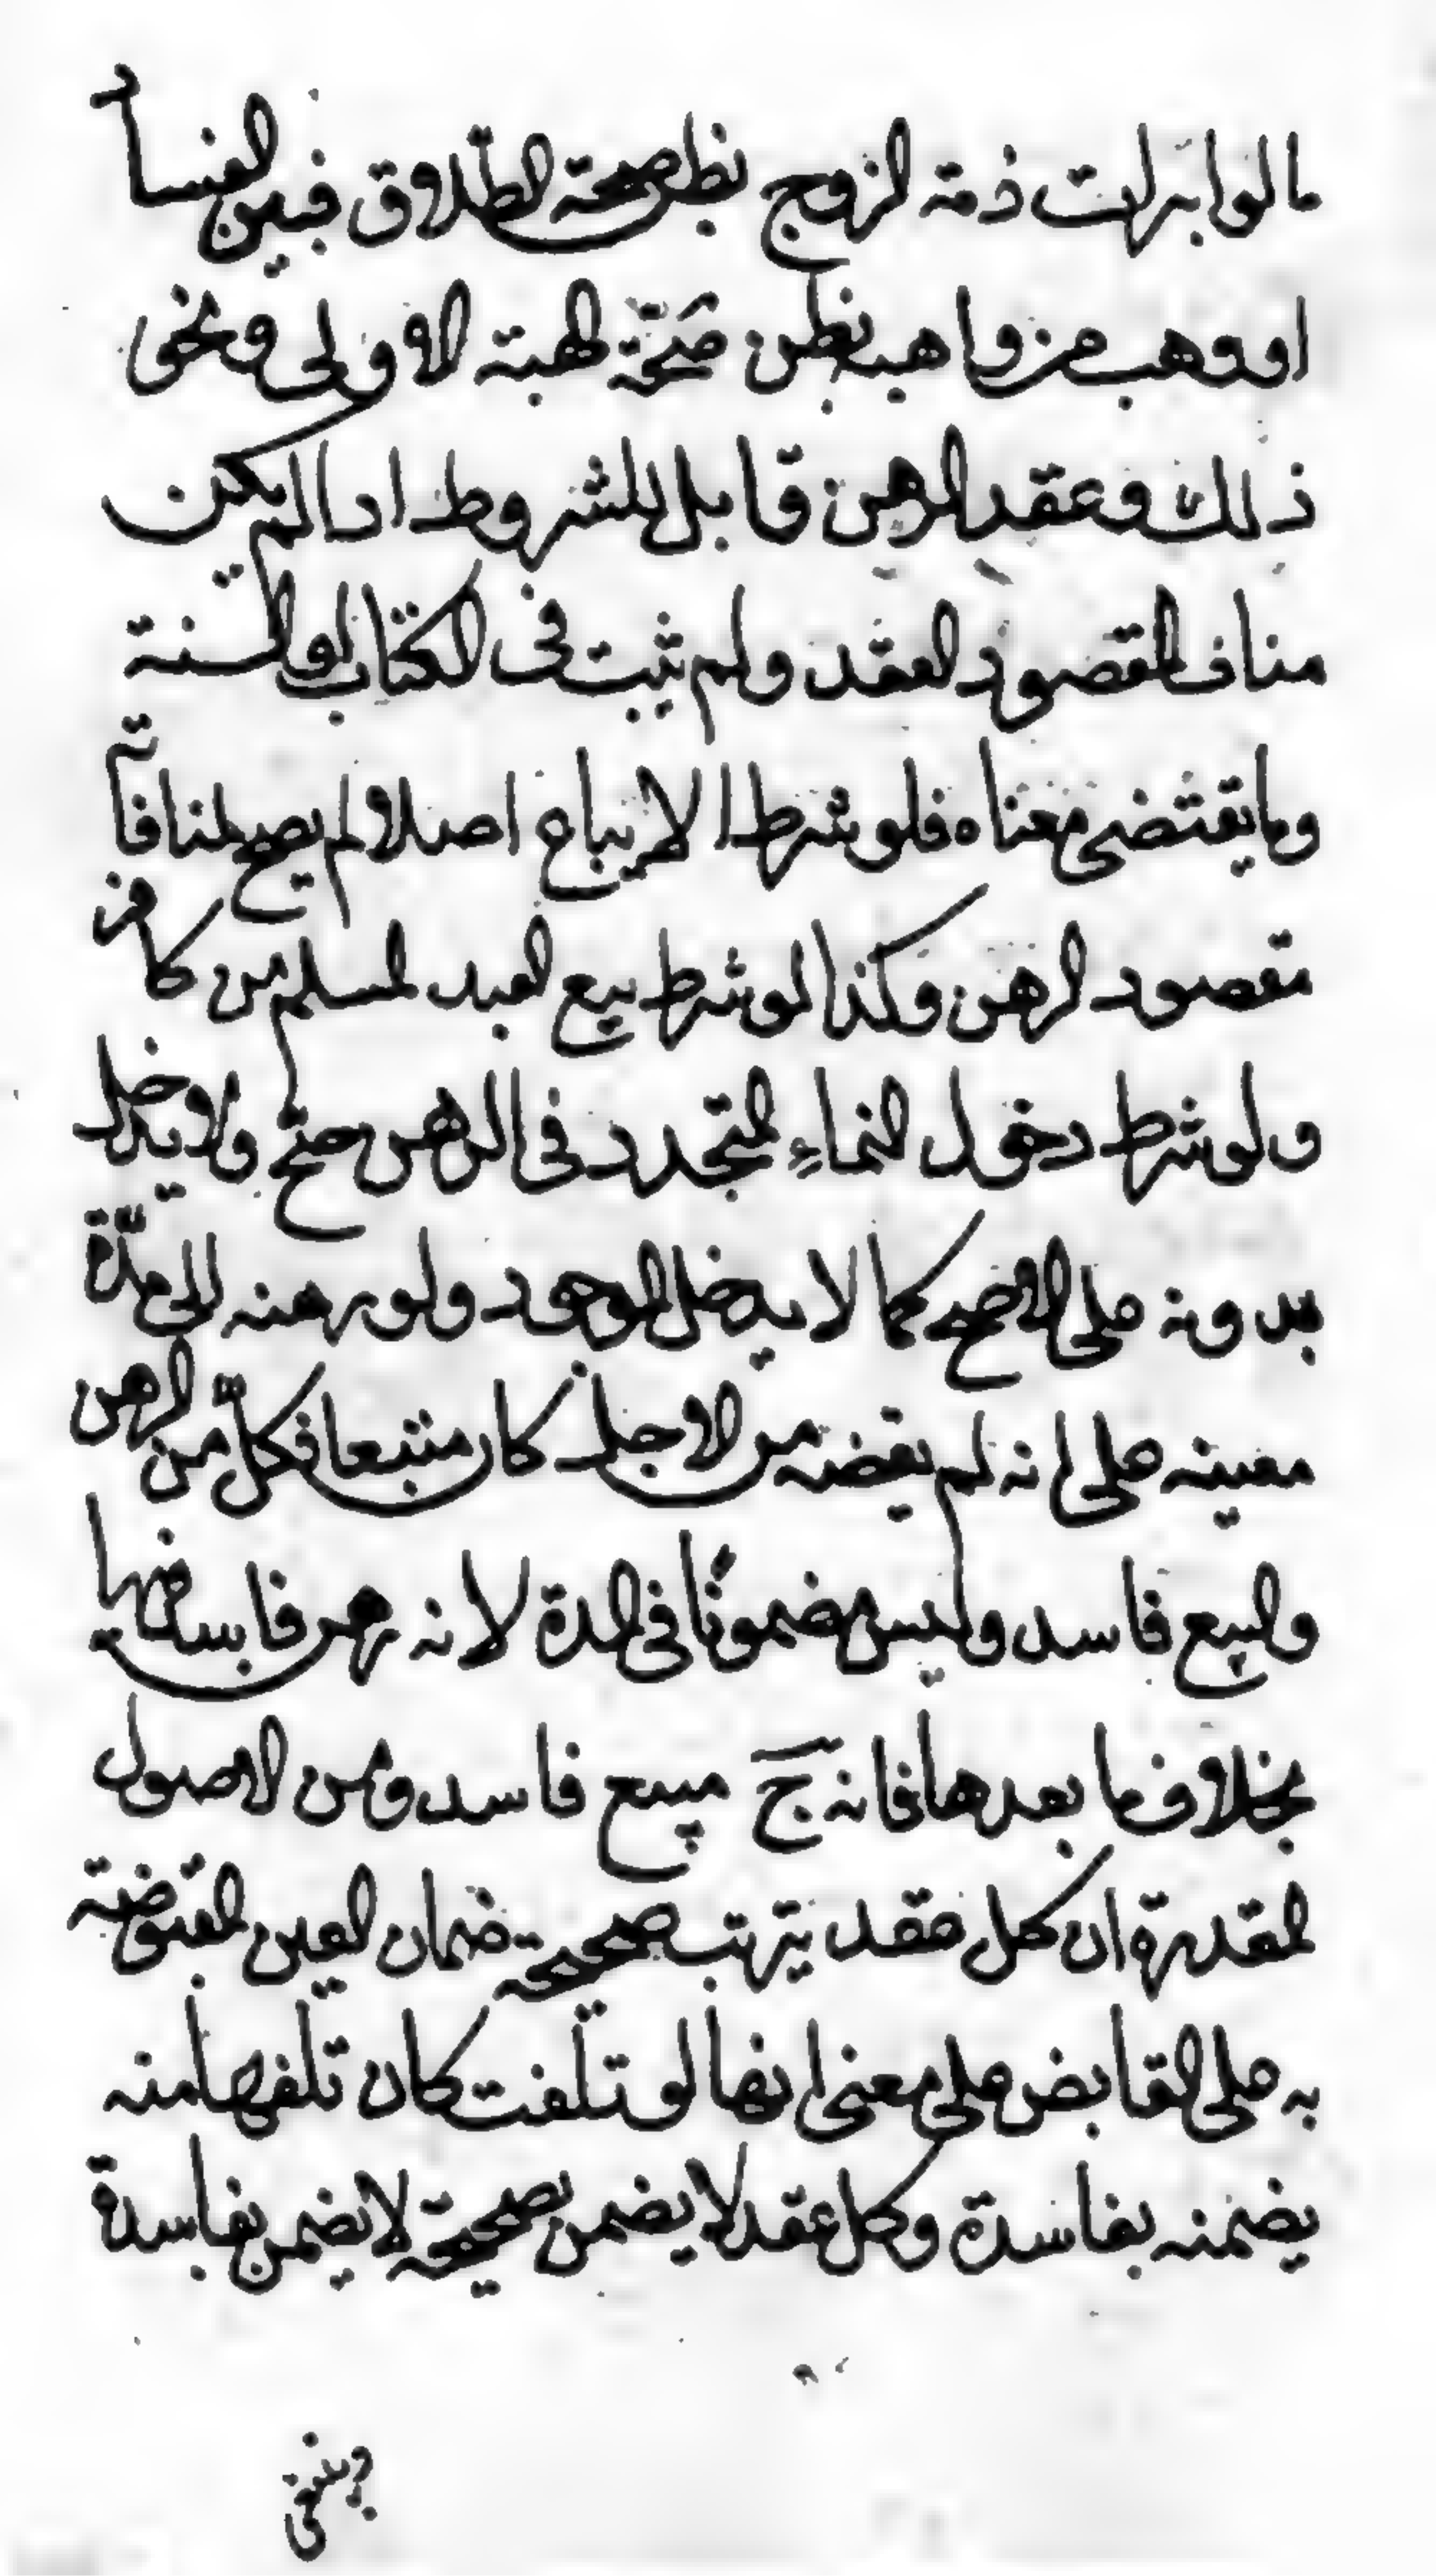 ما لو ابرات ذمة الزوج بظن صحة الطلاق فبين الفساد
او وهب من واهب بظن صحة الهبة الاولى ونحو
ذلك وعقد الرهن قابل للشروط اذا لم يكن
مناف المقصود العقد ولم ثيبت فى الكتاب او السنة
وما يقتضى معناه فلو شرط الا يباع اصلا لم يصح لمنافاته
مقصود الرهن وكذا لو شرط بيع العبد المسلم من كافر
ولو شرط دخول النماء المتجدد فى الرهن صح ولا يدخل
بدونه على الاصح كما لا يدخل الموجود ولو رهنه الى مدة
معينه على انه لم يقضه من الاجل كان مبتعا فكل من الرهن
والبيع فاسد وليس مضمونًا فى المدة لانه رهن فاسد فيها
بخلاف ما بعدها فانه ح مبيع فاسد ومن الاصول
المقدرة ان كل عقد يترتب صحيحة ضمان العين المقبوضة
به على القابض على معنى انها لو تلفت كان تلفها منه
يضمنه بفاسدة وكل عقد لا يضمن بصحيحة لا يضمن بفاسدة